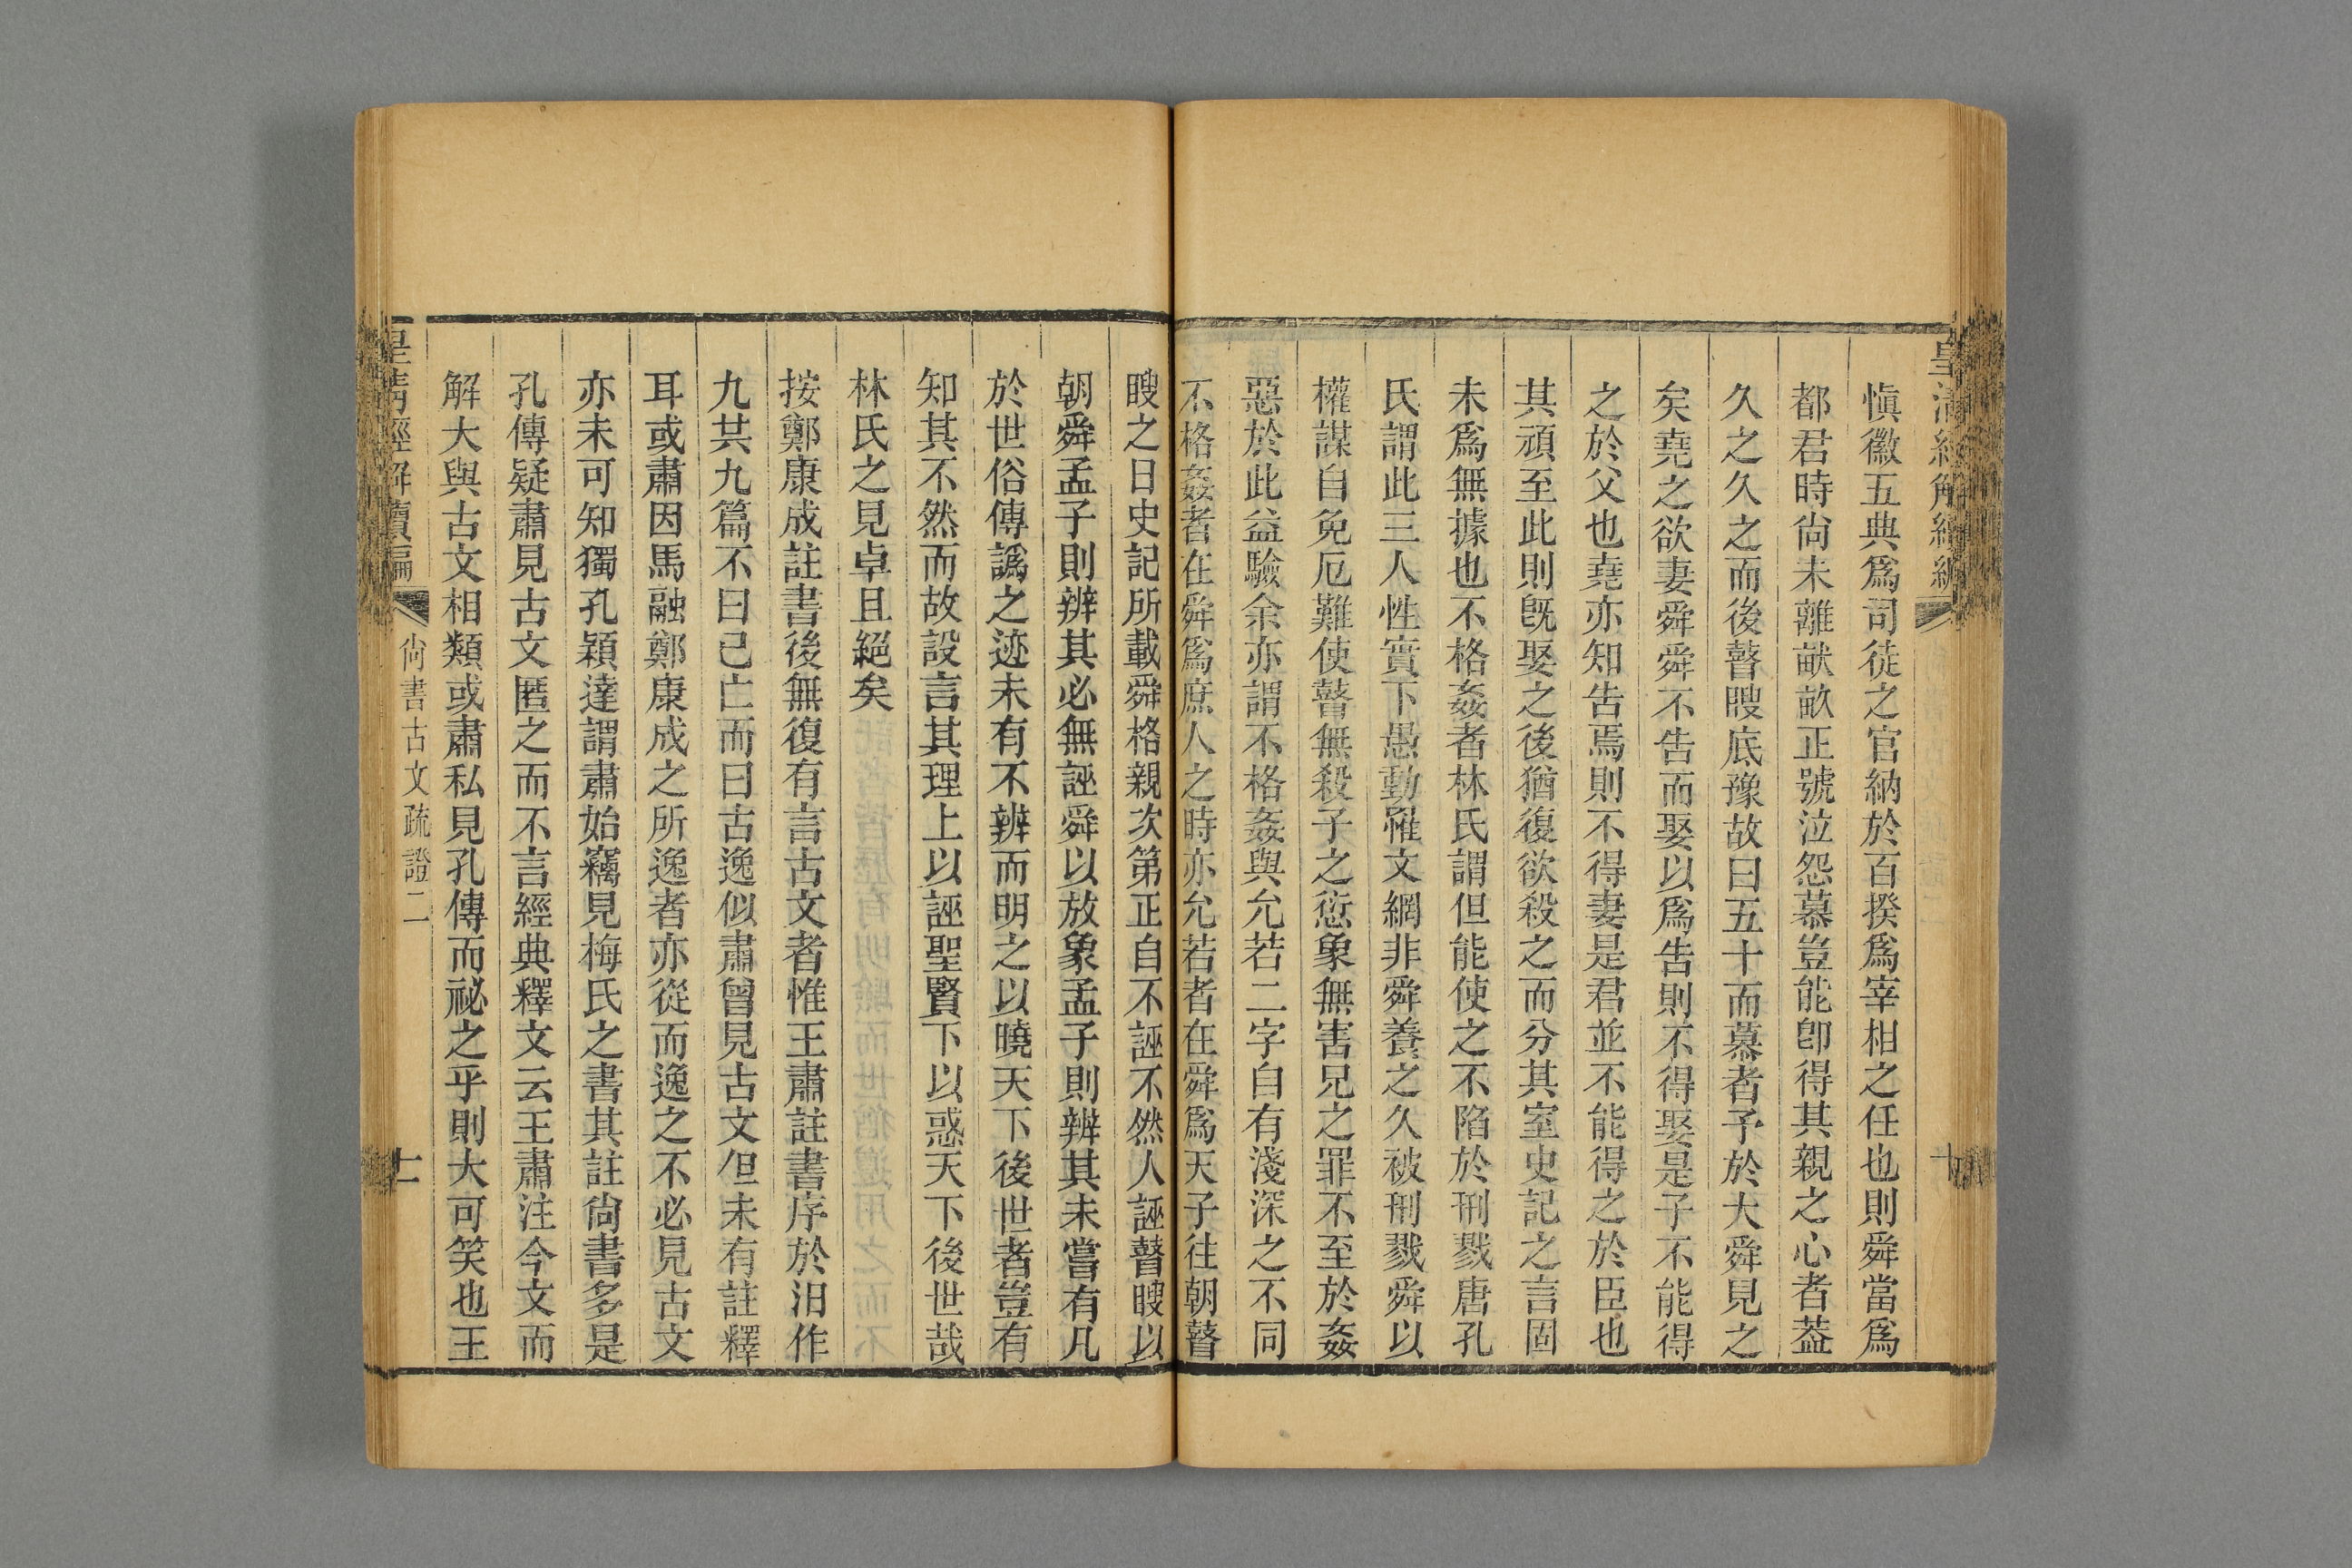 愼徽五典爲司徒之官納於百揆爲宰相之任也則舜當爲
都君時尙未離畎畝正號泣怨慕豈能卽得其親之心者葢
久之久之而後瞽瞍底豫故曰五十而慕者予於大舜見之
矣堯之欲妻舜舜不告而娶以爲告則不得娶是子不能得
之於父也堯亦知告焉則不得妻是君並不能得之於臣也
其頑至此則旣娶之後猶復欲殺之而分其室史記之言固
未爲無據也不格姦者林氏謂但能使之不陷於刑戮唐孔
氏謂此三人性實下愚動罹文網非舜養之久被刑戮舜以
權謀自免厄難使瞽無殺子之愆象無害兄之罪不至於姦
惡於此益驗余亦謂不格姦與允若二字自有淺深之不同
不格姦者在舜爲庶人之時亦允若者在舜爲天子往朝瞽
瞍之日史記所載舜格親次第正自不誣不然人誣瞽瞍以
朝舜孟子則辨其必無誣舜以放象孟子則辨其未嘗有凡
於世俗傳譌之迹未有不辨而明之以曉天下後世者豈有
知其不然而故設言其理上以誣聖賢下以惑天下後世哉
林氏之見卓且絕矣
按鄭康成註書後無復有言古文者惟王肅註書序於汨作
九共九篇不曰已亡而曰古逸似肅曾見古文但未有註釋
耳或肅因馬融鄭康成之所逸者亦從而逸之不必見古文
亦未可知獨孔穎達謂肅始竊見梅氏之書其註尙書多是
孔傳疑肅見古文匿之而不言經典釋文云王肅注今文而
解大與古文相類或肅私見孔傳而祕之乎則大可笑也王
皇淸經解續編
尙書古文疏證二